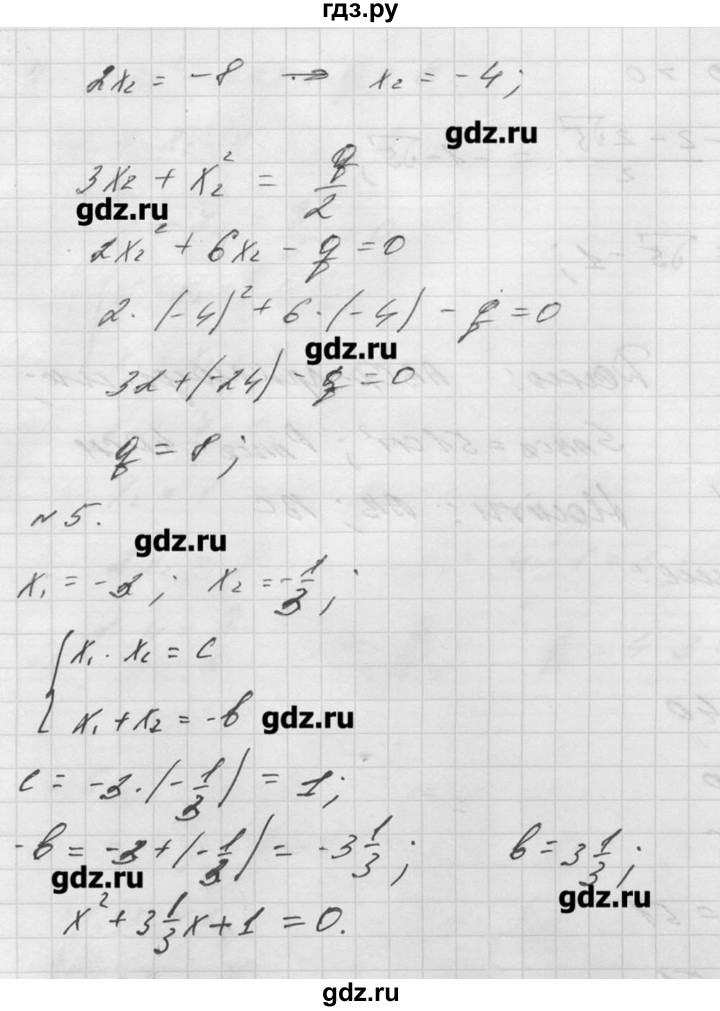 гдз.ру
2x₂ = -8 → x₂ = -4;
gdz.ru
3x₂ + x₂² = q/2
gdz.ru
2x₂² + 6x₂ - q = 0
2·(-4)² + 6·(-4) - q = 0
gdz.ru
32 + (-24) - q = 0
q = 8;
№5.
gdz.ru
x₁ = -3; x₂ = -1/3;
x₁ · x₂ = c
x₁ + x₂ = -b
gdz.ru
c = -3·(-1/3) = 1;
-b = -3 + (-1/3) = -3 1/3; b = 3 1/3;
gdz.ru
gdz.ru
x² + 3 1/3 x + 1 = 0.
gdz.ru